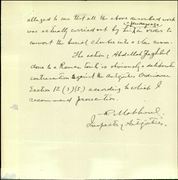 alleged to me that all the above described work
was actually carried out by his order to
convert the burial chamber into a store room.
The action of Abdullah
done to a Roman tomb is obviously a deliberate
contravention against the Antiquities Ordinance
Section 12 (1)(2) according to which I
recommend prosecution.
Inspector, Antiquities.